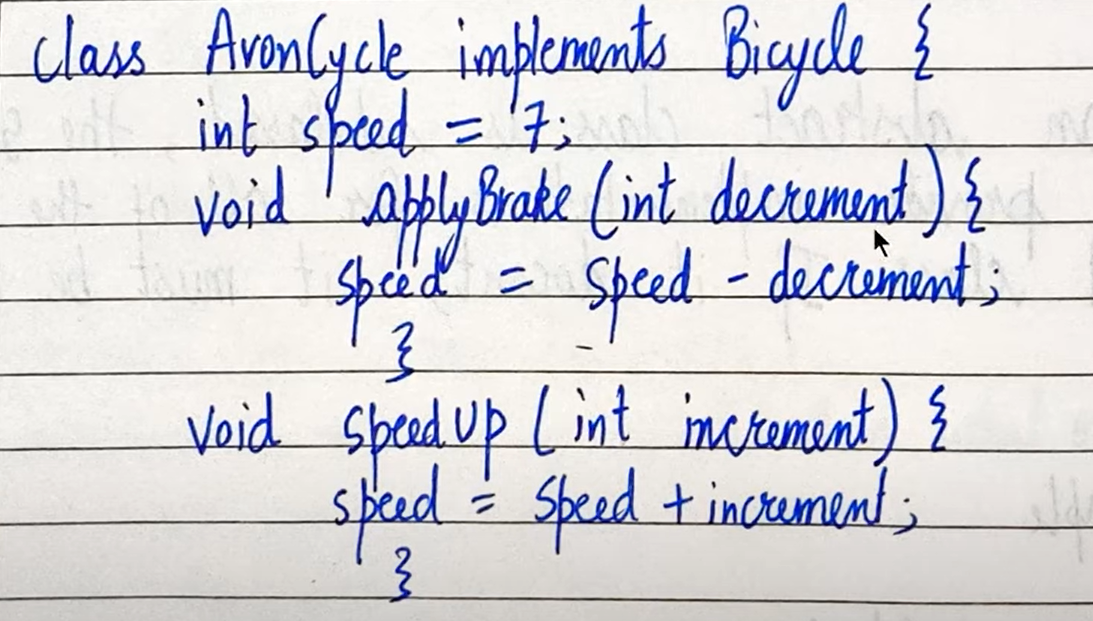 class AvonCycle implements Bicycle {
int speed = 7;
void applyBrake (int decrement) {
speed = speed - decrement;
}
void speedUp (int increment) {
speed = speed + increment;
}